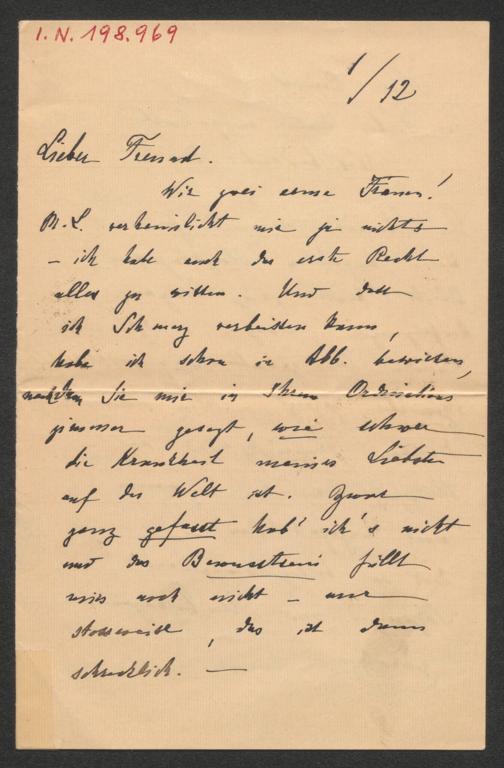 I.N. 198.969
1/12
Lieber Freund.
Wir zwei arme Frauen!
M. L. verheimlicht mir ja nichts
– ich habe auch das erste Recht
alles zu wissen. Und dass
ich Schmerz verbeissen kann,
habe ich schon in Abb. bewiesen,
nachdem Sie mir in Ihrem Ordinations
zimmer gesagt, wie schwer
die Krankheit meines Liebsten
auf der Welt ist. Zwar
ganz gefasst hab' ich's nicht
und das Bewusstsein füllt
mich noch nicht – nur
stossweise, das ist dann
schrecklich. –